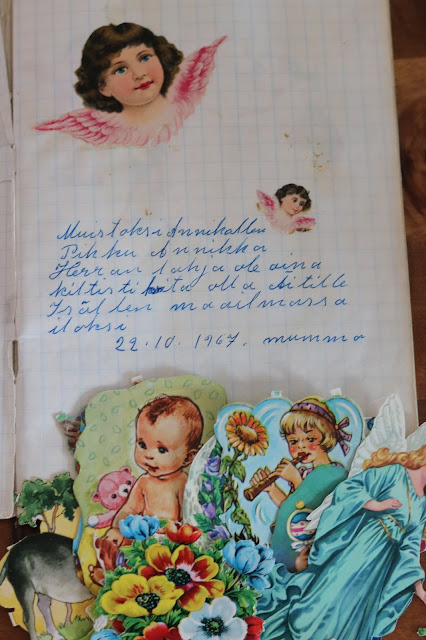 Muistoksi Annikallen
Pikku Annikka
Herran lahja ole aina
kiltisti ta olla Äitille
Isällen maailmassa
iloksi
22.10.1967. mumma